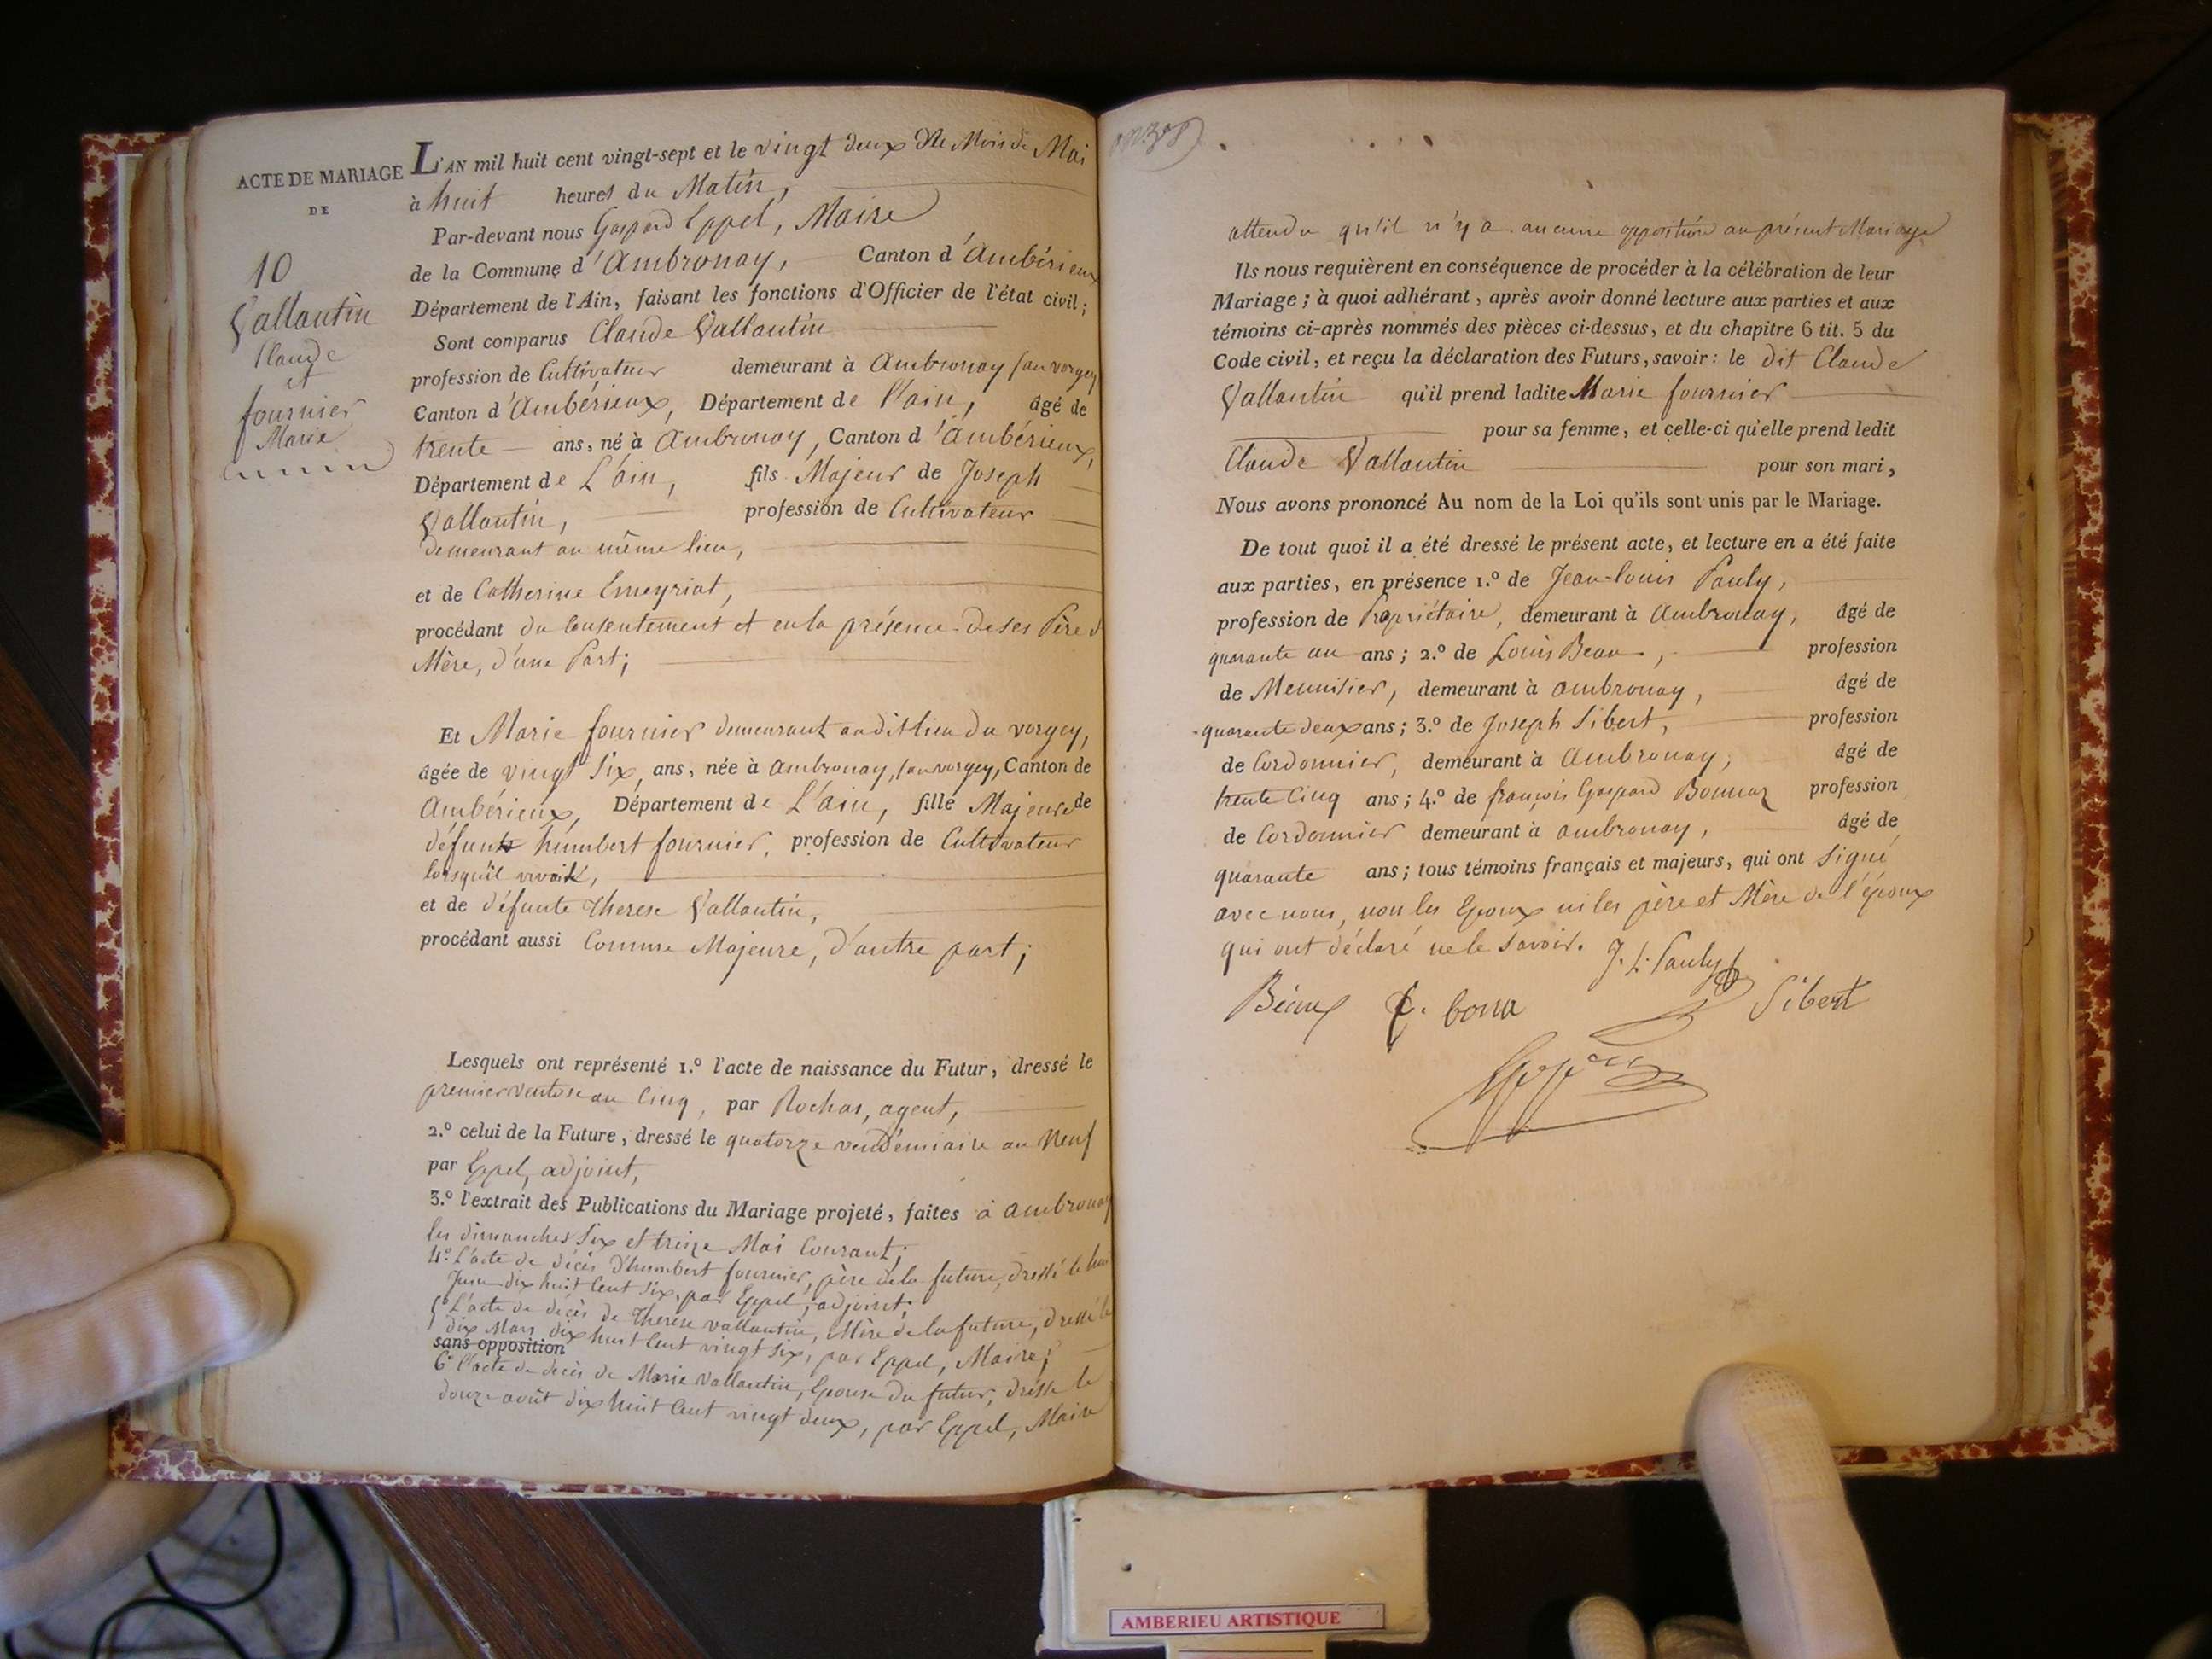 ACTE DE MARIAGE
DE
10
Vallantin
Claude
et
fournier
Marie
L'AN mil huit cent vingt-sept et le vingt deux du Mois de Mai
à huit heures du Matin,
Par-devant nous Gaspard Eppel, Maire
de la Commune d'Ambronay, Canton d'Ambérieux
Département de l'Ain, faisant les fonctions d'Officier de l'état civil;
Sont comparus Claude Vallantin
profession de Cultivateur demeurant à Ambronay (au vorgey
Canton d'Ambérieux, Département de l'ain, âgé de
trente ans, né à Ambronay, Canton d'Ambérieux,
Département de L'ain, fils Majeur de Joseph
Vallantin, profession de Cultivateur
demeurant au même lieu,
et de Catherine Emeyriat,
procédant du Consentement et en la présence de ses Père et
Mère, d'une Part;
Et Marie fournier demeurant audit lieu du vorgey,
âgée de vingt Six ans, née à Ambronay, (au vorgey, Canton de
Ambérieux, Département de L'ain, fille Majeure de
défunt humbert fournier, profession de Cultivateur
lorsqu'il vivait,
et de défunte Therese Vallantin,
procédant aussi Comme Majeure, d'autre part;
Lesquels ont représenté 1.º l'acte de naissance du Futur, dressé le
premier ventose an Cinq, par Rochas, agent,
2.º celui de la Future, dressé le quatorze vendémiaire an Neuf
par Eppel, adjoint,
3.º l'extrait des Publications du Mariage projeté, faites à Ambronay
les dimanches Six et treize Mai Courant;
4º L'acte de décès d'humbert fournier, père de la future, dressé le
Juin dix huit Cent Six, par Eppel, adjoint;
5º L'acte de décès de Therese vallantin, Mère de la future, dressé le
dix Mars dix huit Cent vingt six, par Eppel, Maire;
sans opposition
6º l'acte de décès de Marie Vallantin, Epouse du futur, dressé le
douze août dix huit Cent vingt deux, par Eppel, Maire
attendu qu'il n'y a aucune opposition au présent Mariage
Ils nous requièrent en conséquence de procéder à la célébration de leur
Mariage; à quoi adhérant, après avoir donné lecture aux parties et aux
témoins ci-après nommés des pièces ci-dessus, et du chapitre 6 tit. 5 du
Code civil, et reçu la déclaration des Futurs, savoir: le dit Claude
Vallantin qu'il prend ladite Marie fournier
pour sa femme, et celle-ci qu'elle prend ledit
Claude Vallantin pour son mari,
Nous avons prononcé Au nom de la Loi qu'ils sont unis par le Mariage.
De tout quoi il a été dressé le présent acte, et lecture en a été faite
aux parties, en présence 1.º de Jean-louis Pauly,
profession de Propriétaire, demeurant à Ambronay, âgé de
quarante un ans; 2.º de Louis Beau, profession
de Menuisier, demeurant à ambronay, âgé de
quarante deux ans; 3.º de Joseph Sibert, profession
de Cordonnier, demeurant à Ambronay, âgé de
trente Cinq ans; 4.º de françois Gaspard Bonnaz profession
de Cordonnier demeurant à ambronay, âgé de
quarante ans; tous témoins français et majeurs, qui ont Signé
avec nous, non les Epoux ni les père et Mère de l'époux
qui ont déclaré ne le savoir. J. L. Pauly
Sibert
AMBERIEU ARTISTIQUE